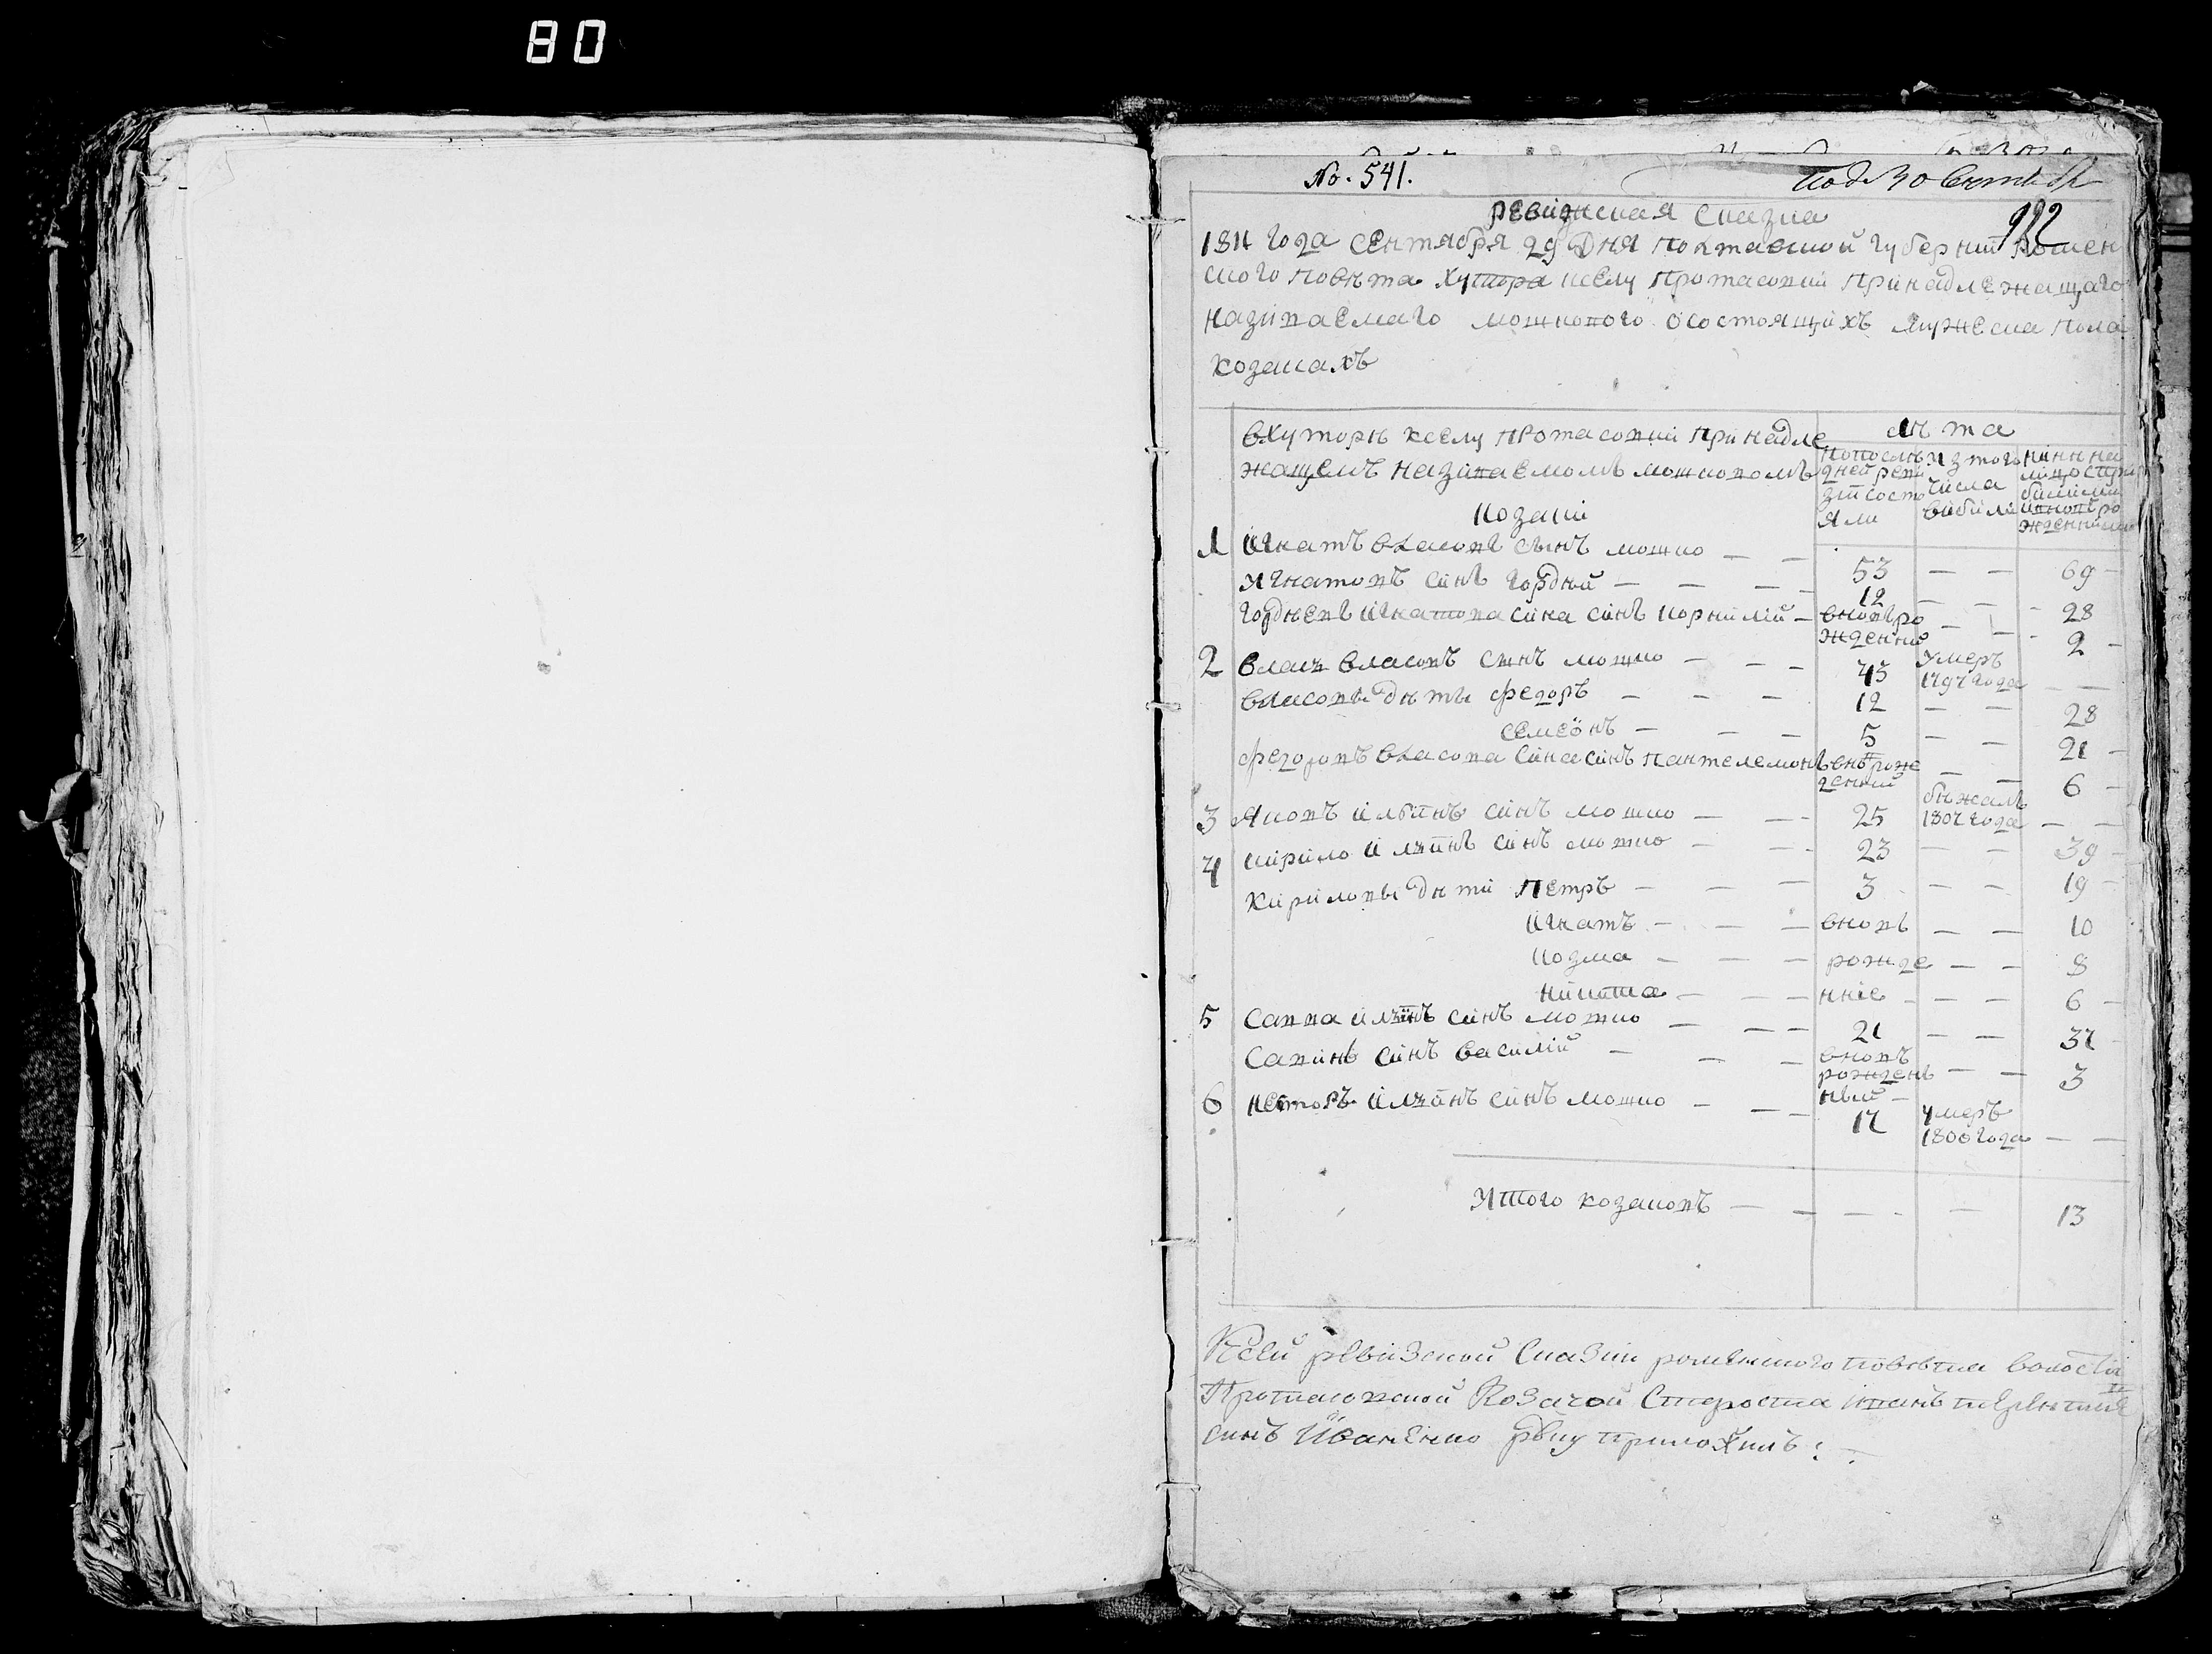 80
No. 541.
922
ревизская сказка
1811 года сентября 29 дня полтавской губернии ромен
ского повѣта хутора кселу протасовки принадлежащаго
називаемаго мошкового осостоящихъ мужеска пола
козакахъ
вхуторѣ кселу протасовки принадле
жащемъ називаемомъ мошковомъ
козаки
лѣта
попослѣ
дней реви
зіи состо
яли
изтого
числа
вибили
нинѣ на
лицо
1 Игнатъ власовъ сынъ мошко — — 53 — — 69
Игнатовъ синъ гордѣй — — — 12 — — 28
гордѣевъ игнатова сина синъ корнилій — вновьро
жденний — — 2
2 власъ власовъ сынъ мошко — — — 43 умеръ
1797 года — —
власовы дѣты федоръ — — — 12 — — 28
семёнъ — — — 5 — — 21
федоровъ власова сина синъ пантелемонъ вновьрож
денний — — 6
3 Яковъ ильинъ синъ мошко — — — 25 бѣжалъ
1807 года — —
4 кирило ильинъ синъ мошко — — — 23 — — 39
кириловы дѣти петръ — — — 3 — — 19
игнатъ — — — вновь — — 10
козма — — — рожде — — 8
никита — — — нніе — — 6
5 савва ильинъ синъ мошко — — — 21 — — 37
савинъ синъ василій — — — вновъ
рожден
ный — — 3
6 несторъ ильинъ синъ мошко — — — 17 умеръ
1806 года — —
Итого козаковъ — — — — — 13
Ксей ревизской сказки роменского повѣта волости
Протасовской козачой староста иванъ терентиевъ
синъ Иваненко руку приложилъ :